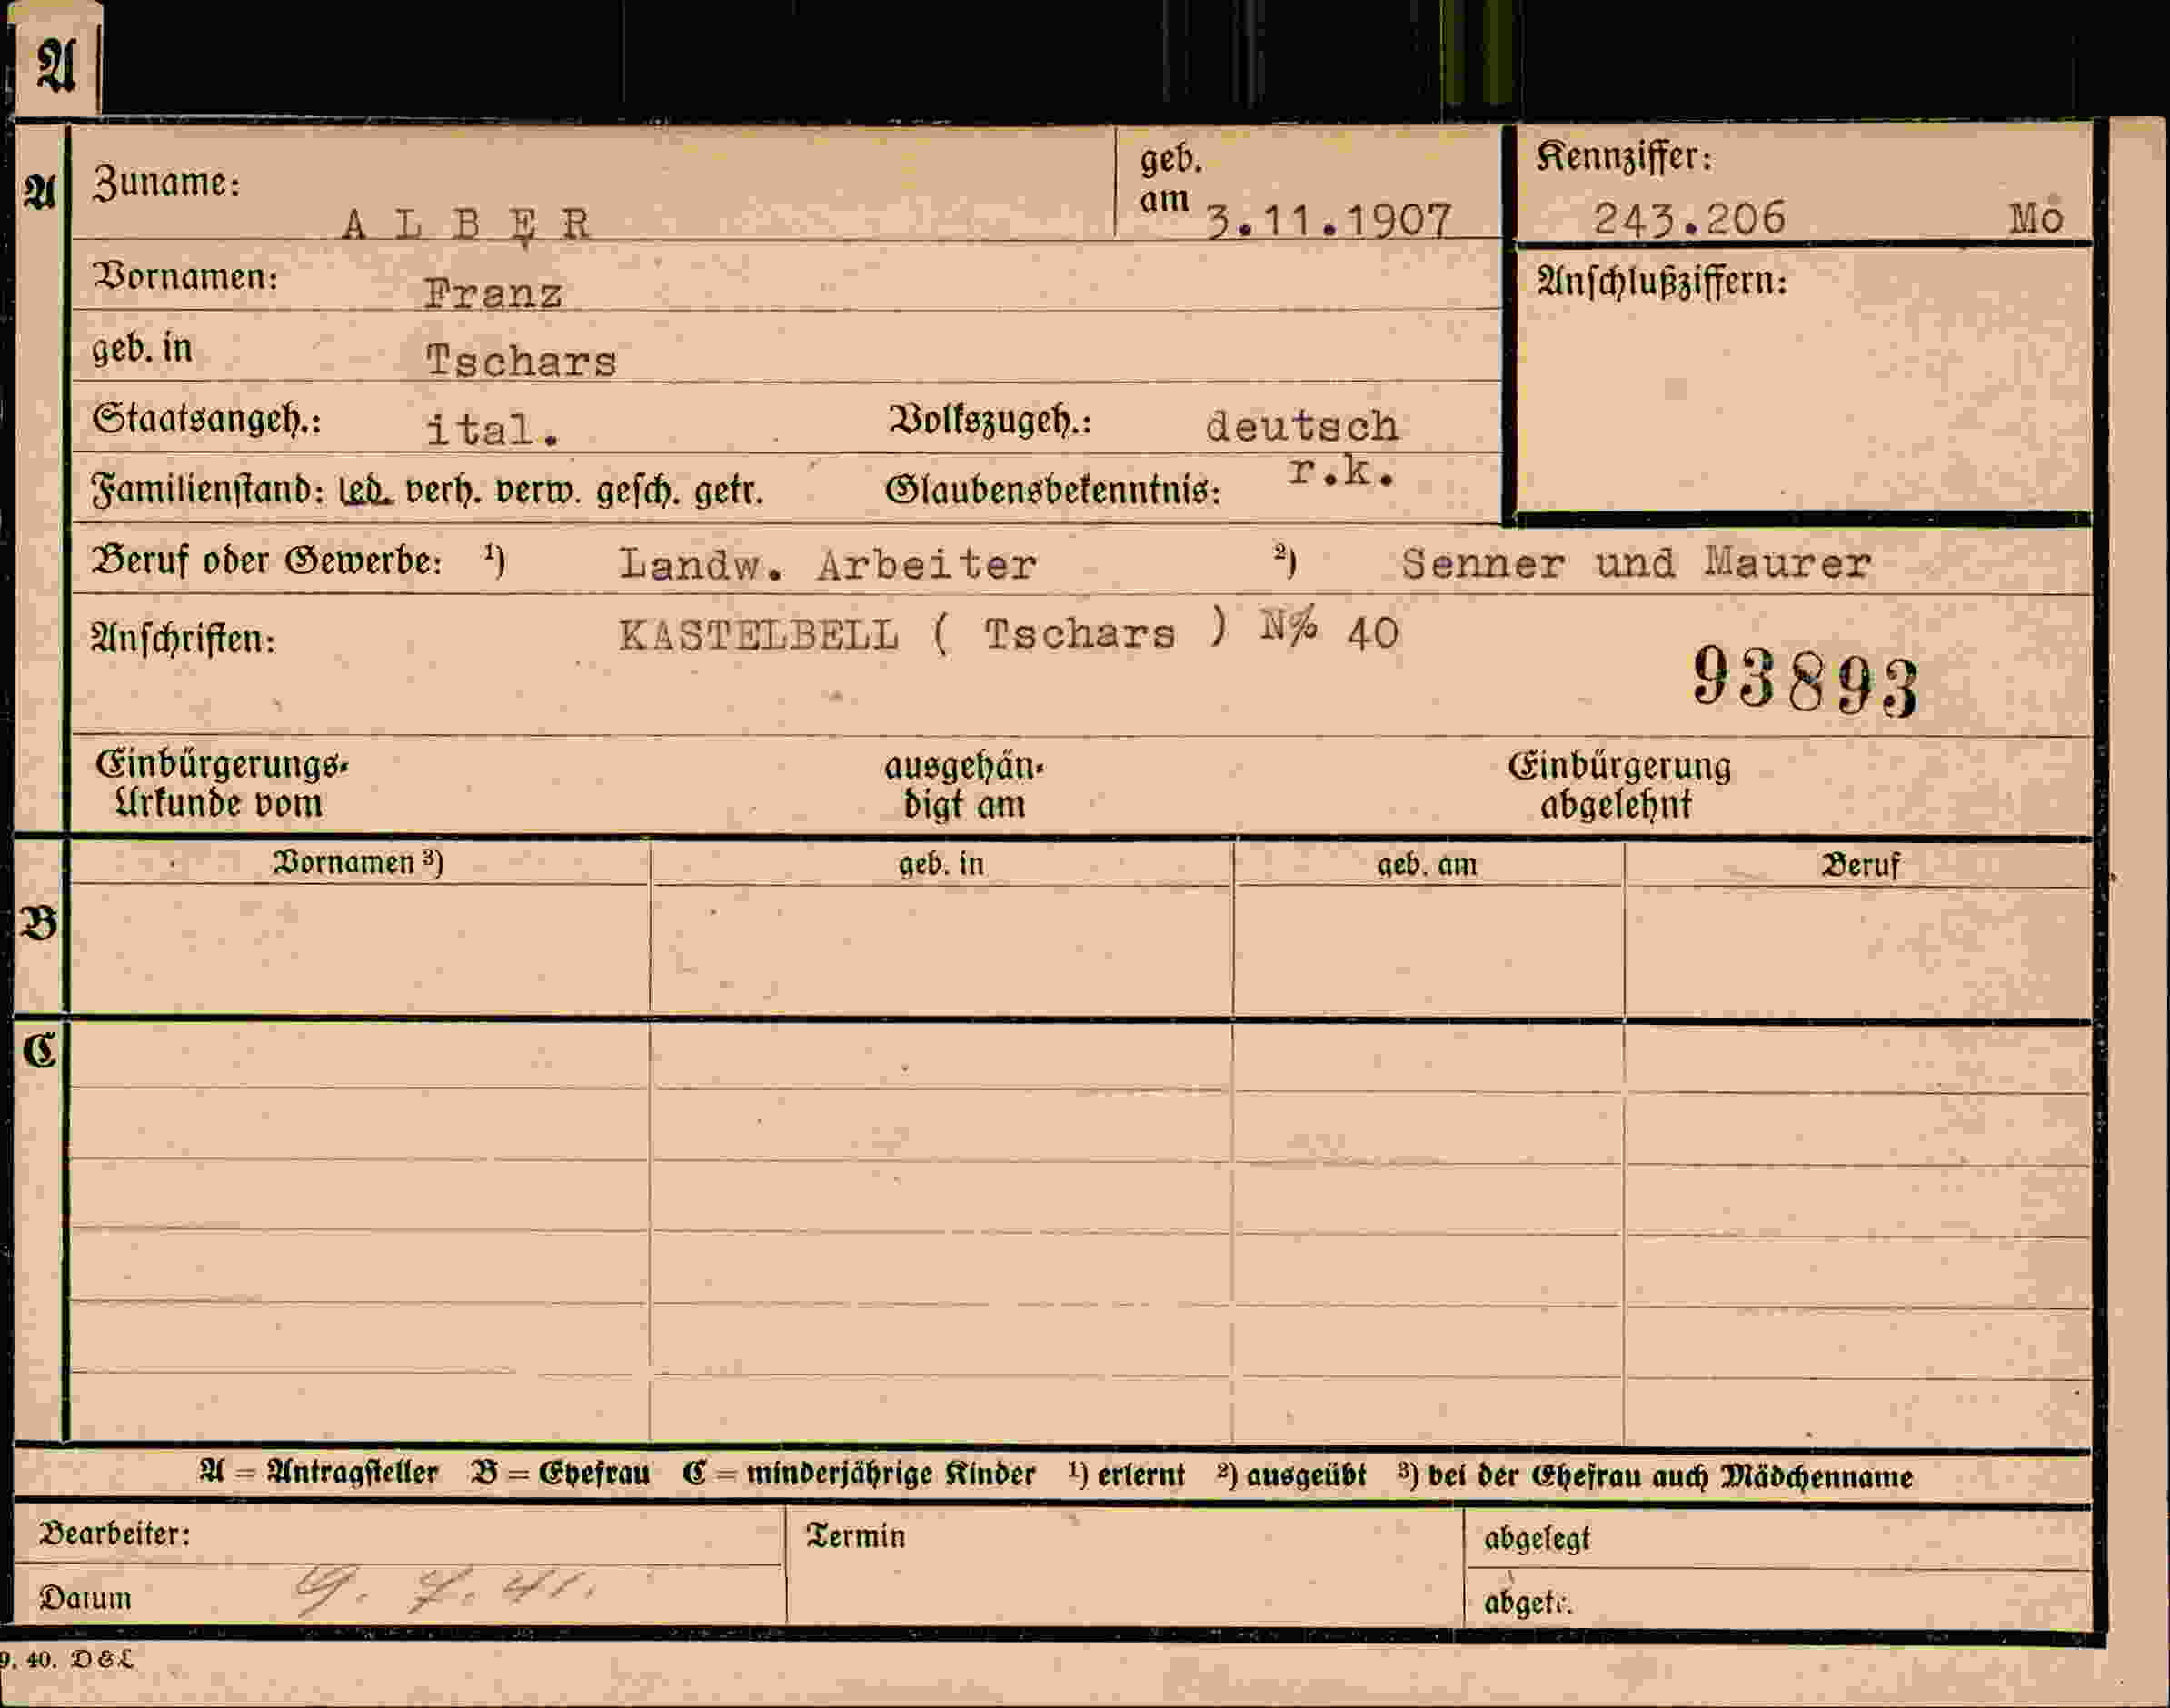 A
A
Zuname: ALBER
geb. am 3.11.1907
Kennziffer:
243.206 Mo
Vornamen: Franz
Anschlußziffern:
geb. in Tschars
Staatsangeh.: ital. Volkszugeh.: deutsch
Familienstand: led. verh. verw. gesch. getr. Glaubensbekenntnis: r.k.
Beruf oder Gewerbe: ¹) Landw. Arbeiter ²) Senner und Maurer
Anschriften: KASTELBELL ( Tschars ) N% 40
93893
Einbürgerungs-Urkunde vom
ausgehändigt am
Einbürgerung abgelehnt
Vornamen ³) geb. in geb. am Beruf
B
C
A = Antragsteller B = Ehefrau C = minderjährige Kinder ¹) erlernt ²) ausgeübt ³) bei der Ehefrau auch Mädchenname
Bearbeiter: Termin abgelegt
Datum 9. 7. 41. abgetr.
9. 40. D & L